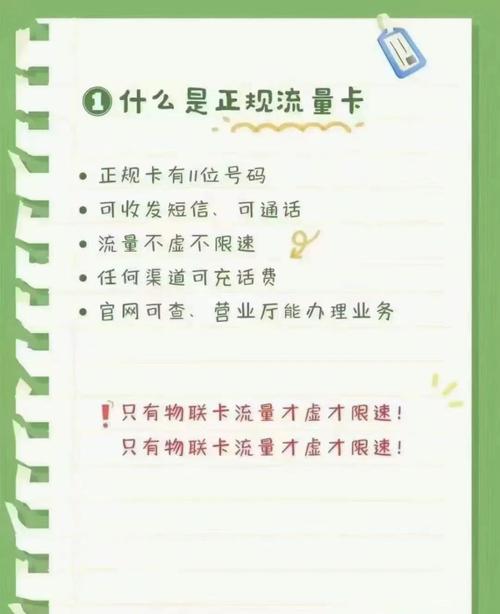 1 什么是正规流量卡
• 正规卡有11位号码
• 可收发短信、可通话
• 流量不虚不限速
• 任何渠道可充话费
• 官网可查、营业厅能办理业务
! 只有物联卡流量才虚才限速!
只有物联卡流量才虚才限速!